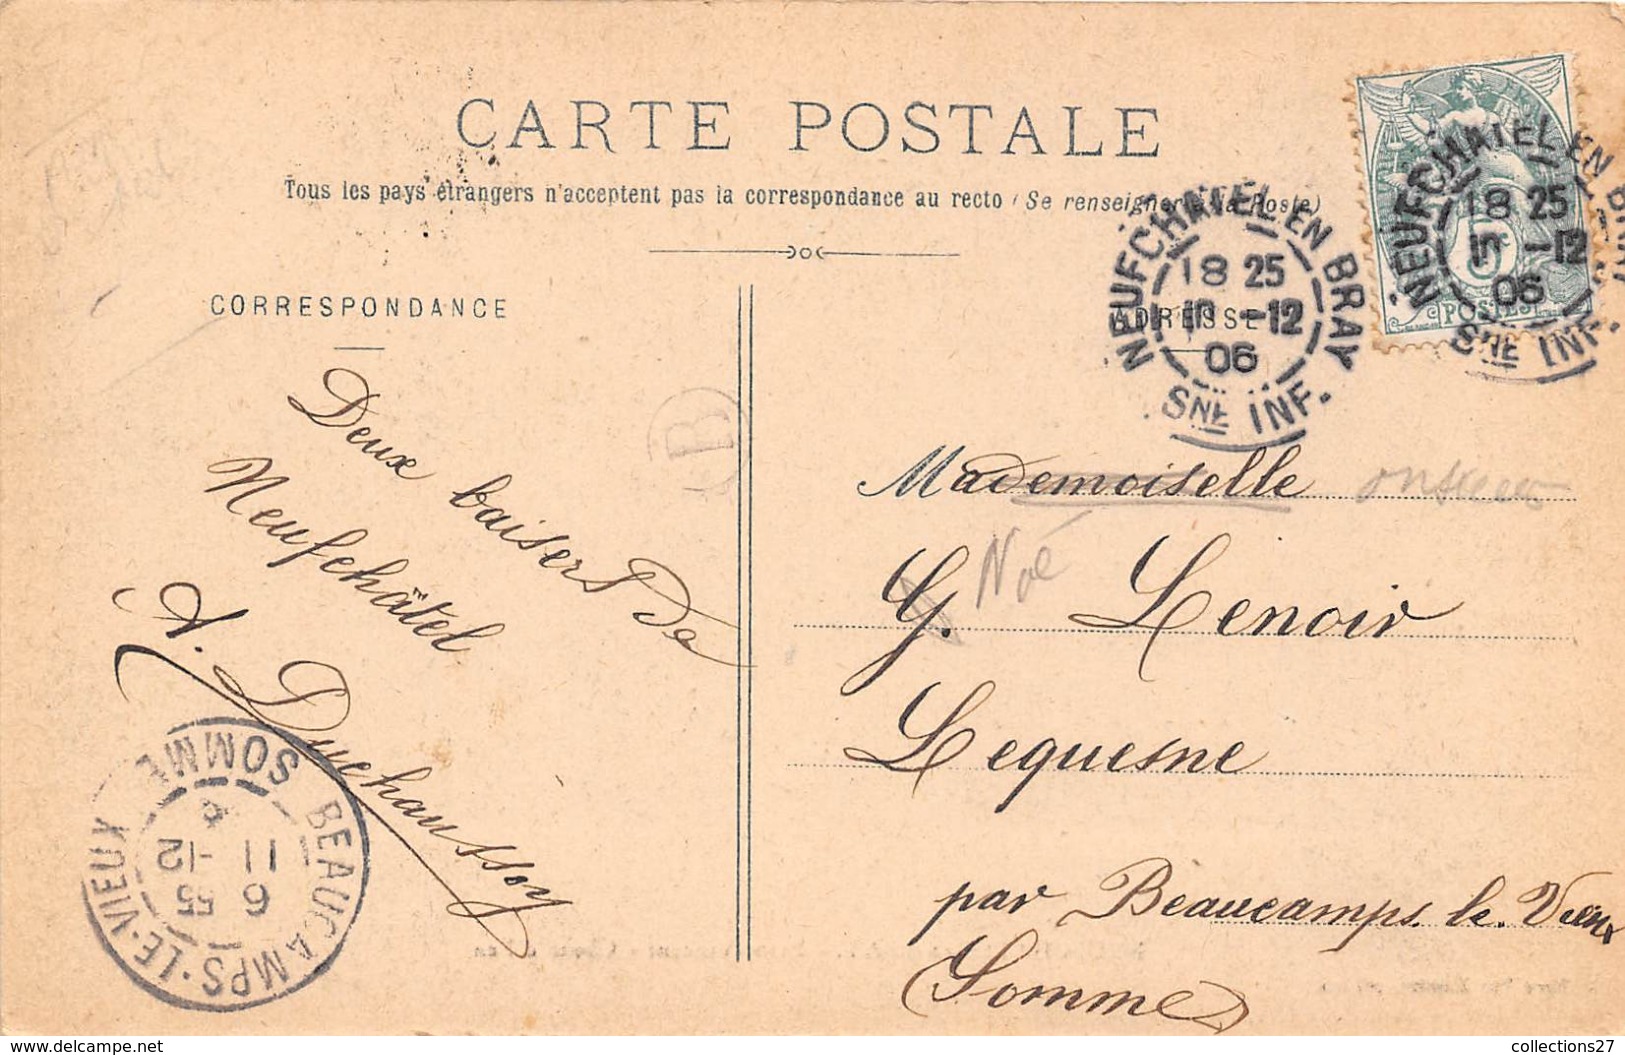 CARTE POSTALE
Tous les pays étrangers n'acceptent pas la correspondance au recto (Se renseigner à la Poste)
CORRESPONDANCE
ADRESSE
NEUFCHATEL EN BRAY
18 25
-12
06
SNE INF.
NEUFCHATEL EN BRAY
18 25
-12
06
SNE INF.
POSTES
B
Deux baisers de
Neufchâtel
A. Duchaussoy
Mademoiselle
Noé
G. Lenoir
Lequesne
par Beaucamps le Vieux
(Somme)
BEAUCAMPS-LE-VIEUX SOMME
6 55
11 -12
collections27